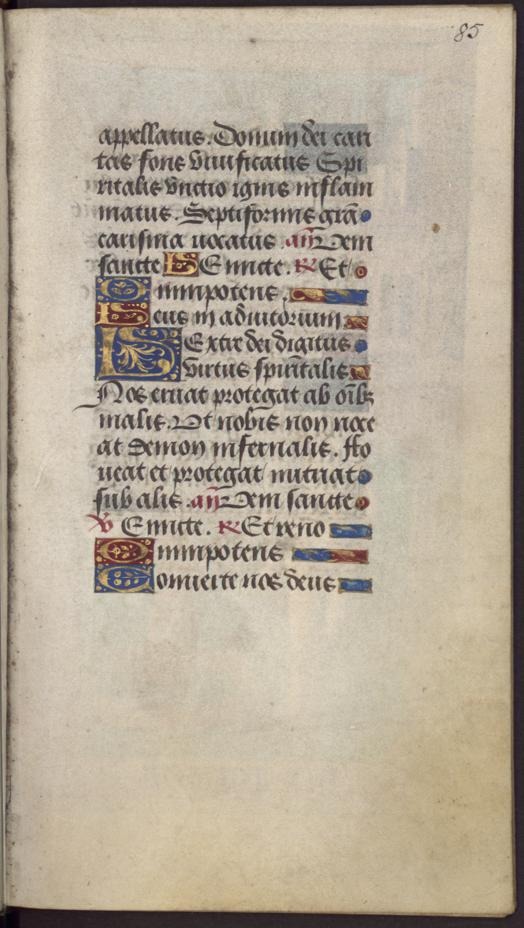 85
appellatus. Donum dei cari
tas fons viuificatus Spi
ritalis vnctio ignis inflam
matus. Septiformis gr̄a
carisma uocatus. an̄ Ueni
sancte Emitte. ℟ Et
Omnipotens.
Deus in adiutorium
Dextre dei digitus
virtus spiritalis
Nos eruat protegat ab oīb;
malis. Ut nobis non noce
at demon infernalis. fo
ueat et protegat nutriat
sub alis. an̄ Ueni sancte
℣ Emitte. ℟ Et reno
Omnipotens
Conuerte nos deus